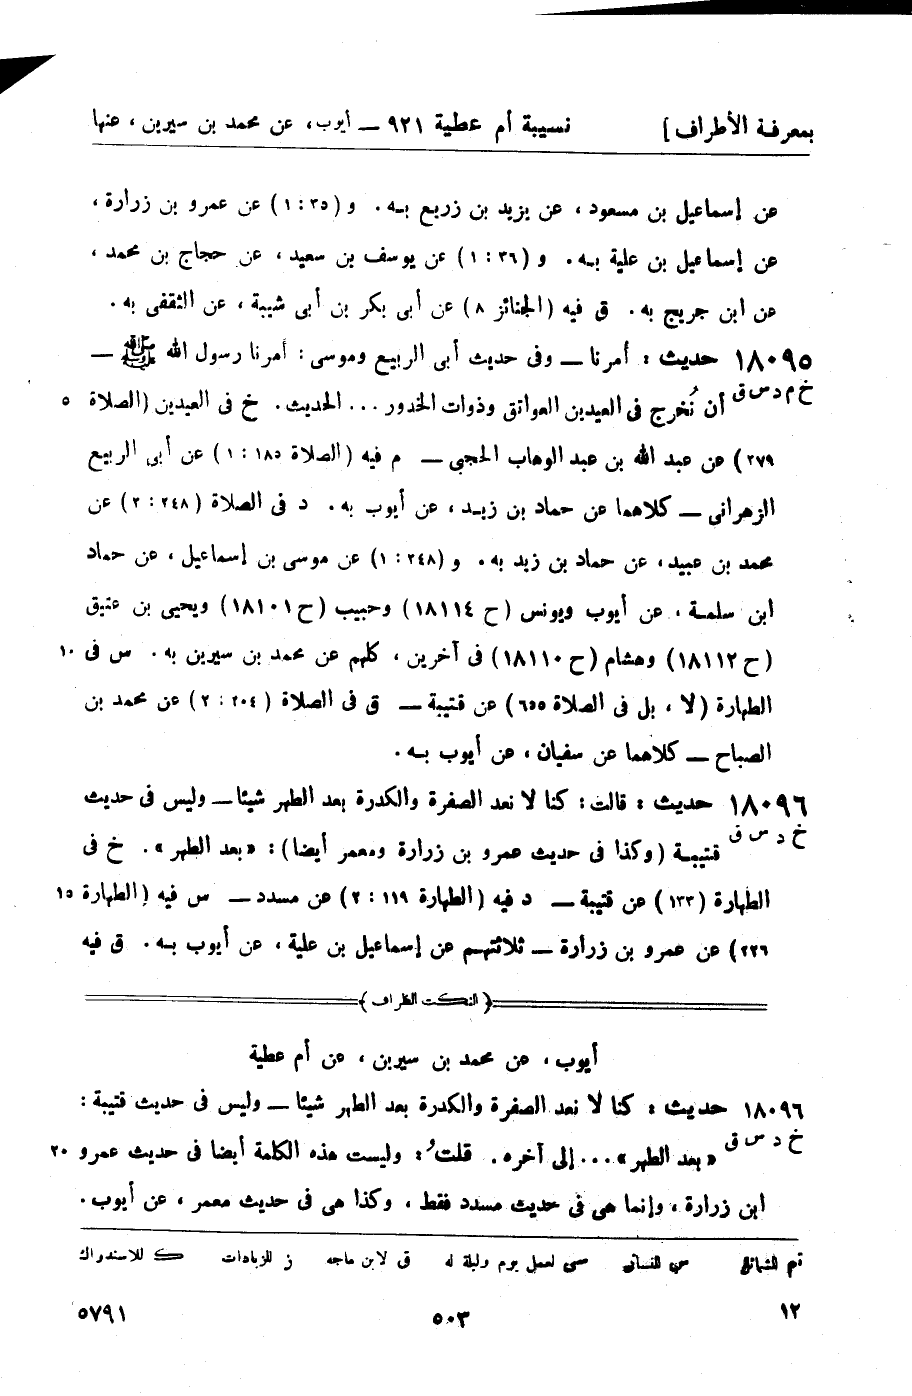 بمعرفة الأطراف] نسيبة أم عطية ٩٢١ ــ أيوب، عن محمد بن سيرين، عنها
عن إسماعيل بن مسعود، عن يزيد بن زريع بـه. و (٣٥ : ١) عن عمرو بن زرارة،
عن إسماعيل بن علية بـه. و (٣٦ : ١) عن يوسف بن سعيد، عن حجاج بن محمد،
عن ابن جريج به. ق فيه (الجنائز ٨) عن أبى بكر بن أبى شيبة، عن الثقفى به.
١٨٠٩٥ حديث: أمرنا ــ وفى حديث أبى الربيع وموسى: أمرنا رسول الله ﷺ ــ
خ م د س ق أن نُخرج فى العيدين العواتق وذوات الخدور ... الحديث. خ فى العيدين (الصلاة ٥
٢٧٩) عن عبد الله بن عبد الوهاب الحجبى ــ م فيه (الصلاة ١٨٥ : ١) عن أبى الربيع
الزهرانى ــ كلاهما عن حماد بن زيـد، عن أيوب به. د فى الصلاة (٢٤٨ : ٢) عن
محمد بن عبيد، عن حماد بن زيد به. و (٢٤٨ : ١) عن موسى بن إسماعيل، عن حماد
ابن سلمـة، عن أيوب ويونس (ح ١٨١١٤) وحبيب (ح ١٨١٠١) ويحيى بن عتيق
(ح ١٨١١٢) وهشام (ح ١٨١١٠) فى آخرين، كلهم عن محمد بن سيرين به. س فى ١٠
الطهارة (لا، بل فى الصلاة ٦٥٥) عن قتيبة ــ ق فى الصلاة (٢٠٤ : ٢) عن محمد بن
الصباح ــ كلاهما عن سفيان، عن أيوب بـه.
١٨٠٩٦ حديث: قالت: كنا لا نعد الصفرة والكدرة بعد الطهر شيئا ــ وليس فى حديث
خ د س ق قتيبـة (وكذا فى حديث عمرو بن زرارة ومعمر أيضا): «بعد الطهر». خ فى
الطهارة (١٣٣) عن قتيبة ــ د فيه (الطهارة ١١٩ : ٢) عن مسدد ــ س فيه (الطهارة ١٥
٢٢٦) عن عمرو بن زرارة ــ ثلاثتهـم عن إسماعيل بن علية، عن أيوب بـه. ق فيه
(النكت الظراف)
أيوب، عن محمد بن سيرين، عن أم عطية
١٨٠٩٦ حديث: كنا لا نعد الصفرة والكدرة بعد الطهر شيئا ــ وليس فى حديث قتيبة:
خ د س ق «بعد الطهر» ... إلى آخره. قلتُ: وليست هذه الكلمة أيضا فى حديث عمرو ٢٠
ابن زرارة، وإنما هى فى حديث مسدد فقط، وكذا هى فى حديث معمر، عن أيوب.
تم للشمائل س للنسائى سى لعمل يوم وليلة له ق لابن ماجه ز للزيادات ك للاستدراك
١٢ ٥٠٣ ٥٧٩١